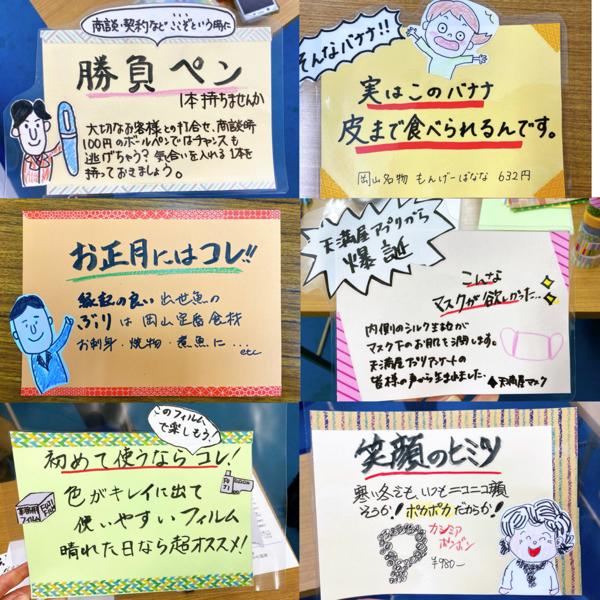 商談・契約など ここぞという時に
勝負ペン
1本持ちませんか
大切なお客様との打合せ、商談時
100円のボールペンではチャンスも
逃げちゃう？気合いを入れる1本を
持っておきましょう。
そんなバナナ!!
実はこのバナナ
皮まで食べられるんです。
岡山名物 もんげーばなな 632円
お正月にはコレ!!
縁起の良い 出世魚の
ぶり は 岡山定番食材
お刺身・焼物・煮魚に…
etc
天満屋アプリから
爆誕
こんな
マスクが欲しかった…
内側のシルク生地が
マスク下のお肌を
天満屋アプリアンケートの
皆様の声から生まれました。
天満屋マスク
このフィルム
で楽しもう!
初めて使うなら コレ!
色がキレイに出て
使いやすいフィルム
晴れた日なら超オススメ!
業務用
フィルム
FUJI
FILM
笑顔のヒミツ
寒い冬でも、いつもニコニコ顔
そうか! ポカポカだからか!
カシミア
ポンポン
¥980-